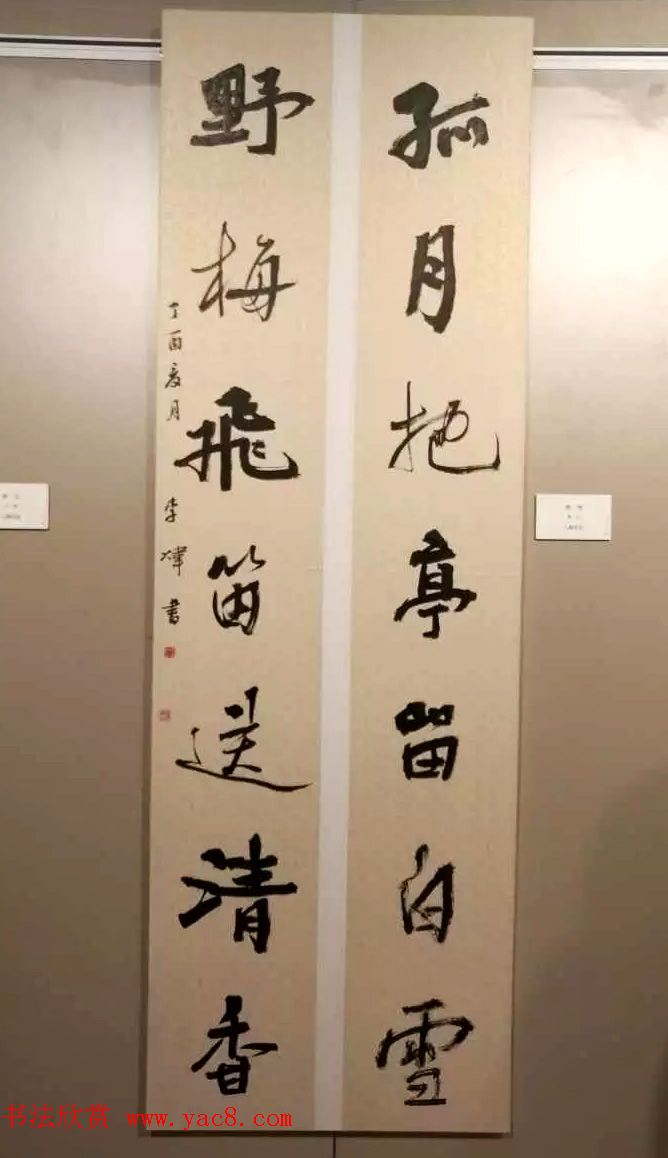 孤月把亭留白雪
野梅飛笛送清香
丁酉夏月 李 書
书法欣赏 www.yac8.com